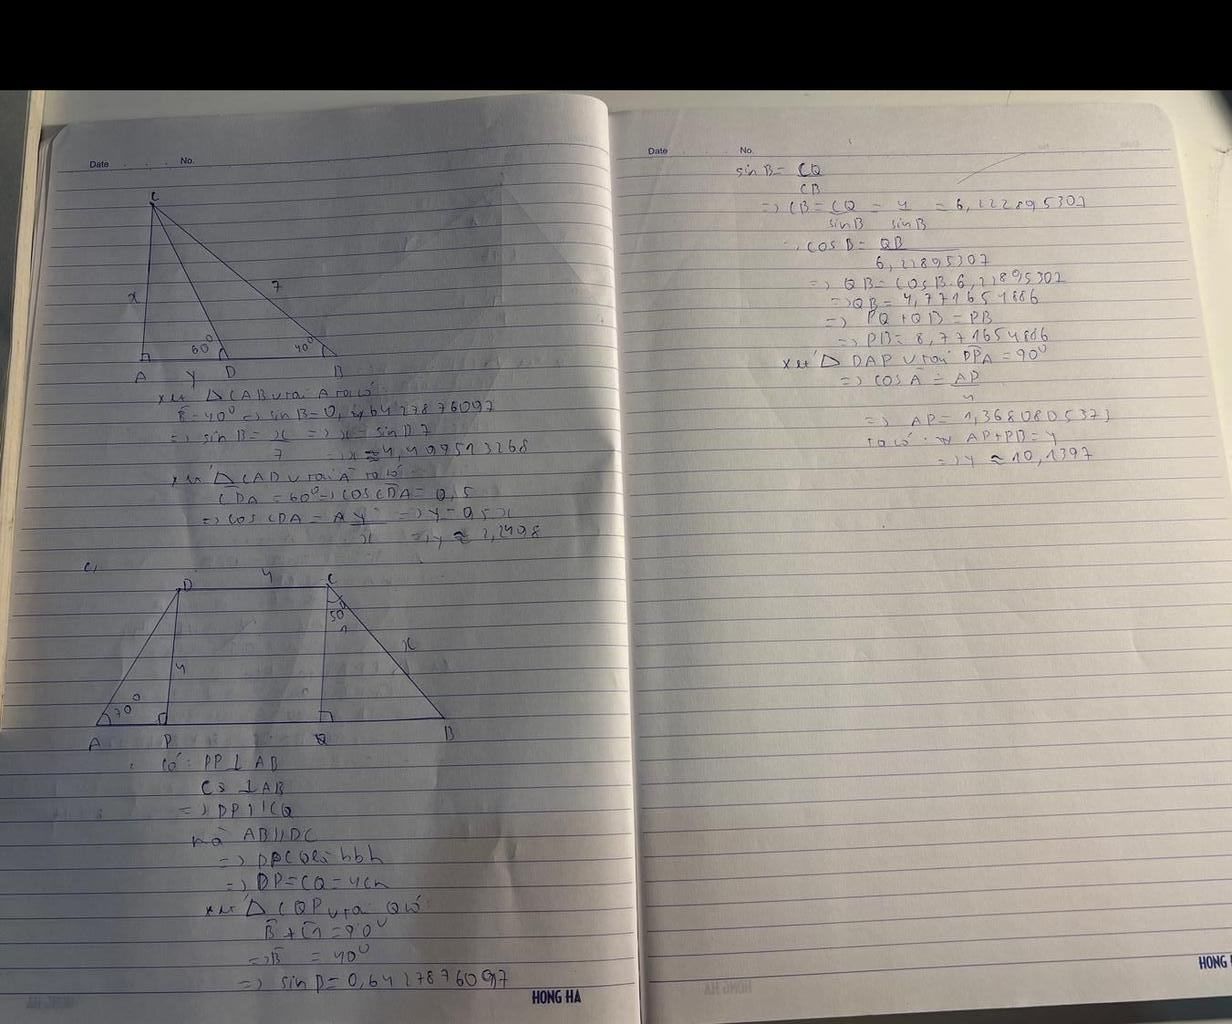 Date No.
C
x
7
60°
40°
A y D B
xét Δ CAB v tại A ta có:
B̂ = 40° => sin B = 0,6427876097
=> sin B = x/7 => x = sin B.7
=> x ≈ 4,499513268
xét Δ CAD v tại A ta có:
CDA = 60° => cos CDA = 0,5
=> cos CDA = y/x => y = 0,5x
=> y ≈ 2,2498
c,
D 4 C
50°
1
4
x
70°
A P Q B
Có: DP ⊥ AB
CQ ⊥ AB
=> DP // CQ
mà AB // DC
=> DPCQ là hbh
=> DP = CQ = 4cm
xét Δ CQB v tại Q có:
B̂ + Ĉ1 = 90°
=> B̂ = 40°
=> sin B = 0,6427876097
HONG HA
Date No.
sin B = CQ/CB
=> CB = CQ/sin B = 4/sin B = 6,222895307
=> cos B = QB/6,22895307
=> QB = cos B.6,22895302
=> QB = 4,771654886
=> PQ + QB = PB
=> PB = 8,771654886
xét Δ DAP v tại DPA = 90°
=> cos A = AP/4
=> AP = 1,368080573
ta có: AP + PB = y
=> y ≈ 10,1397
HONG